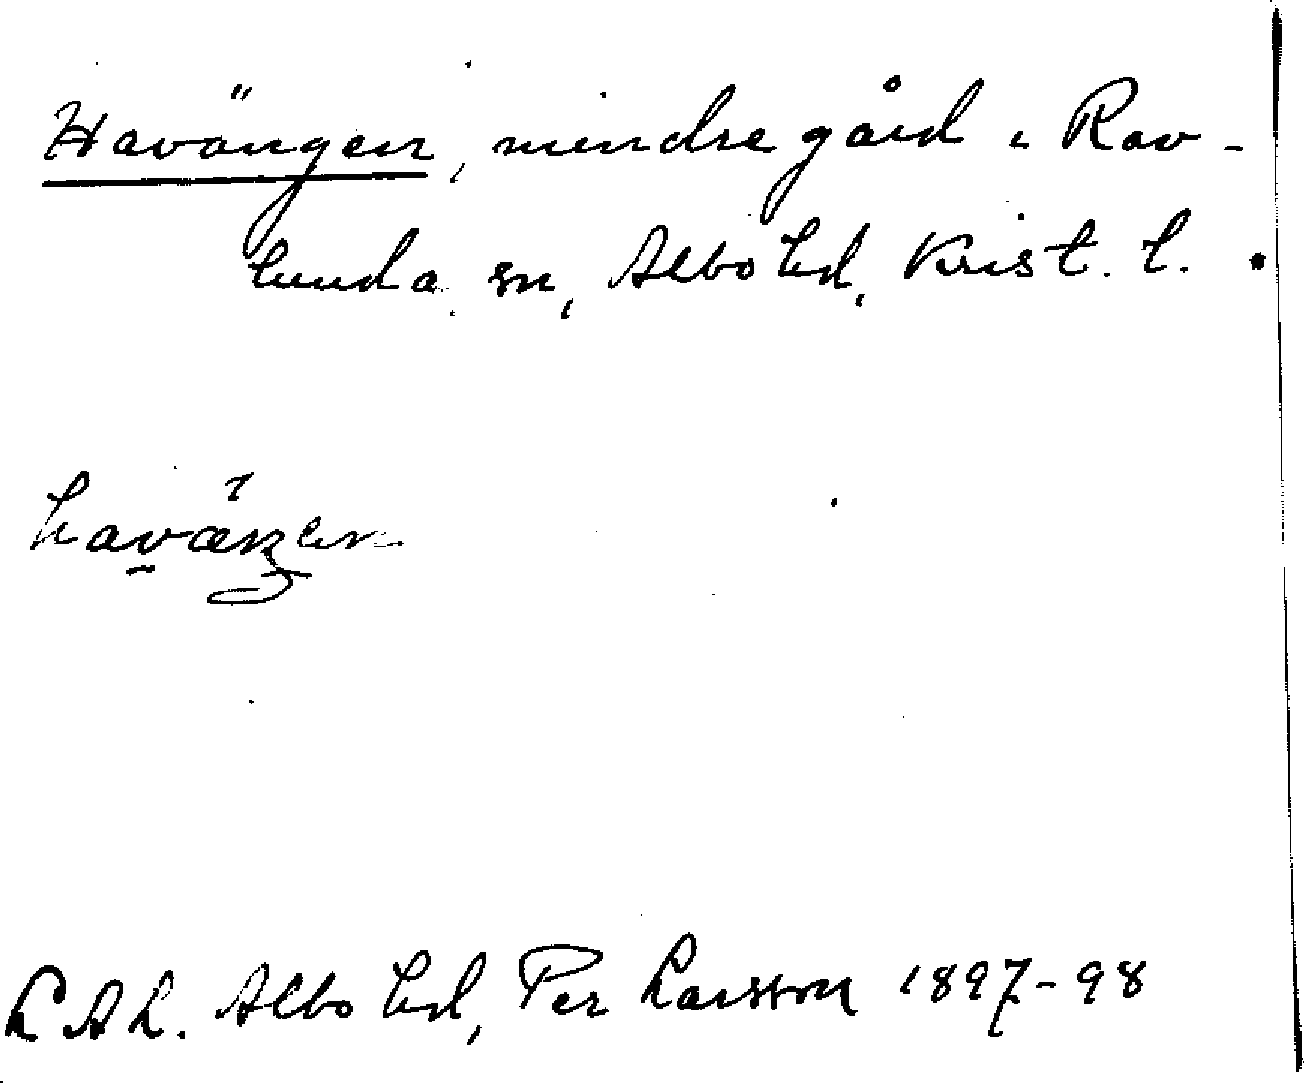 Havängen, mindre gård i Rav-
lunda sn, Albo hd, Krist. l.
havæŋen
LAL. Albo hd, Per Larsson 1897-98